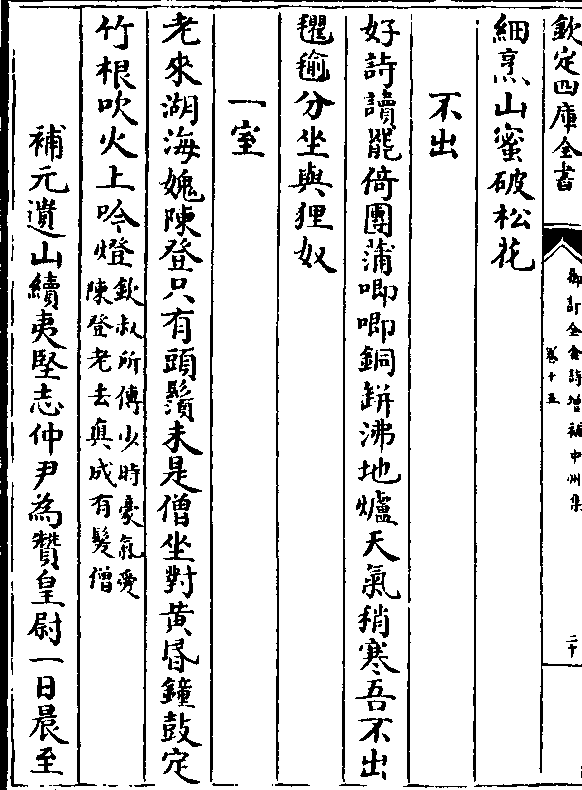 欽定四庫全書
御訂全金詩增補中州集
卷十五
二十
細烹山蜜破松花
不出
好詩讀罷倚團蒲唧唧銅缾沸地爐天氣稍寒吾不出
氍毹分坐與狸奴
一室
老來湖海媿陳登只有頭鬚未是僧坐對黃昏鐘鼓定
竹根吹火上吟燈
欽叔所傳少時豪氣愛
陳登老去真成有髮僧
補元遺山續夷堅志仲尹為贊皇尉一日晨至